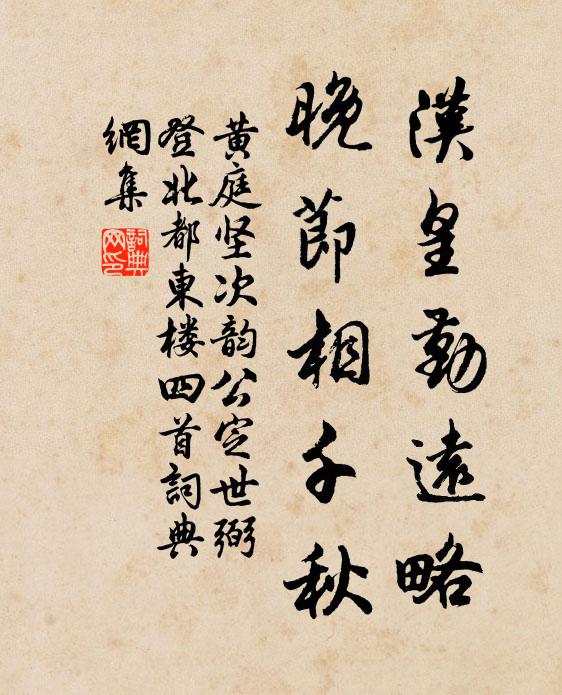 漢皇勤遠略
晚節相千秋
黃庭坚次韵公定世弼
登北都東楼四首詞典
網集
詞典
网印